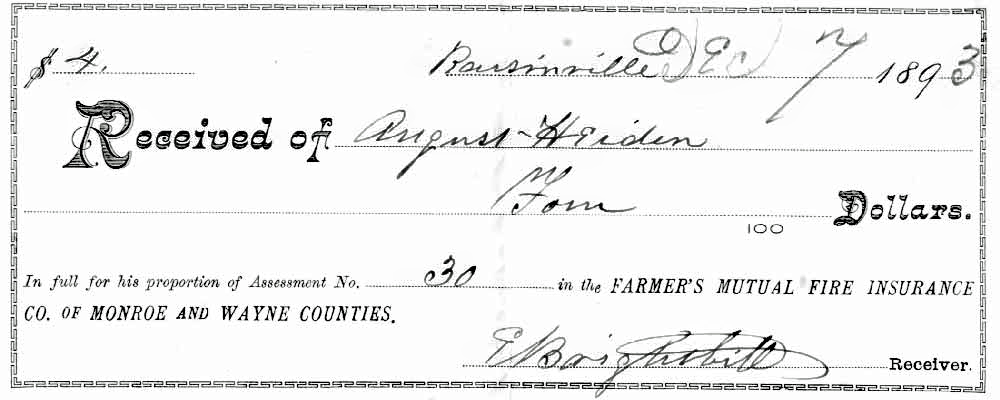 $ 4. Rawsinville DEc 7 1893
Received of August Heiden
Four 100 Dollars.
In full for his proportion of Assessment No. 30 in the FARMER'S MUTUAL FIRE INSURANCE
CO. OF MONROE AND WAYNE COUNTIES.
E Brightbill Receiver.